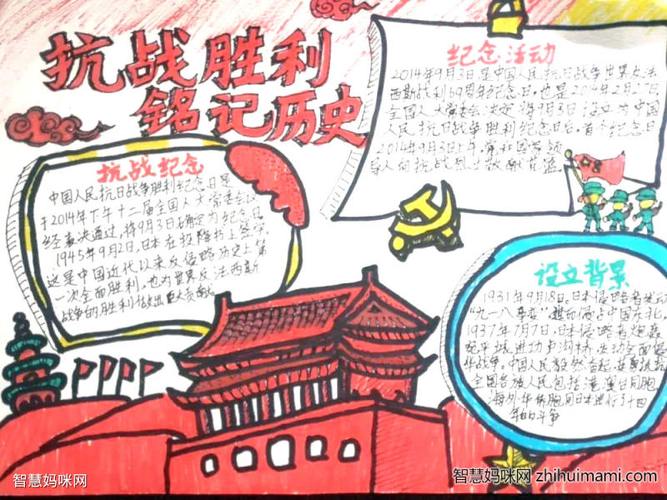 抗战胜利
铭记历史
纪念活动
2014年9月3日是中国人民抗日战争暨世界反法
西斯战利69周年纪念日。也是2014年2月27日
全国人大常委会决定将9月3日设立为中国
人民抗日战争胜利纪念日后,首个纪念日
2014年9月3日上午,党和国家领
导人向抗战烈士敬献花篮
抗战纪念
中国人民抗日战争胜利纪念日是
于2014年下午十二届全国人大常委会以
经表决通过,将9月3日确定为纪念日
1945年9月2日,日本在投降书上签字
这是中国近代以来反侵略历史上第
一次全面胜利,也为世界反法西斯
战争的胜利做出巨大贡献
设立背景
1931年9月18日,日本侵略者发动
"九一八事变",占中国东北。
1937年7月7日,日本侵略者炮轰
宛平城进攻卢沟桥,发动全面侵
华战争。中国人民毅然奋起,
全国各族人民包括港澳台同胞
海外华侨同胞同日本进行了十四
年的斗争
智慧妈咪网
智慧妈咪网 zhihuimami.com